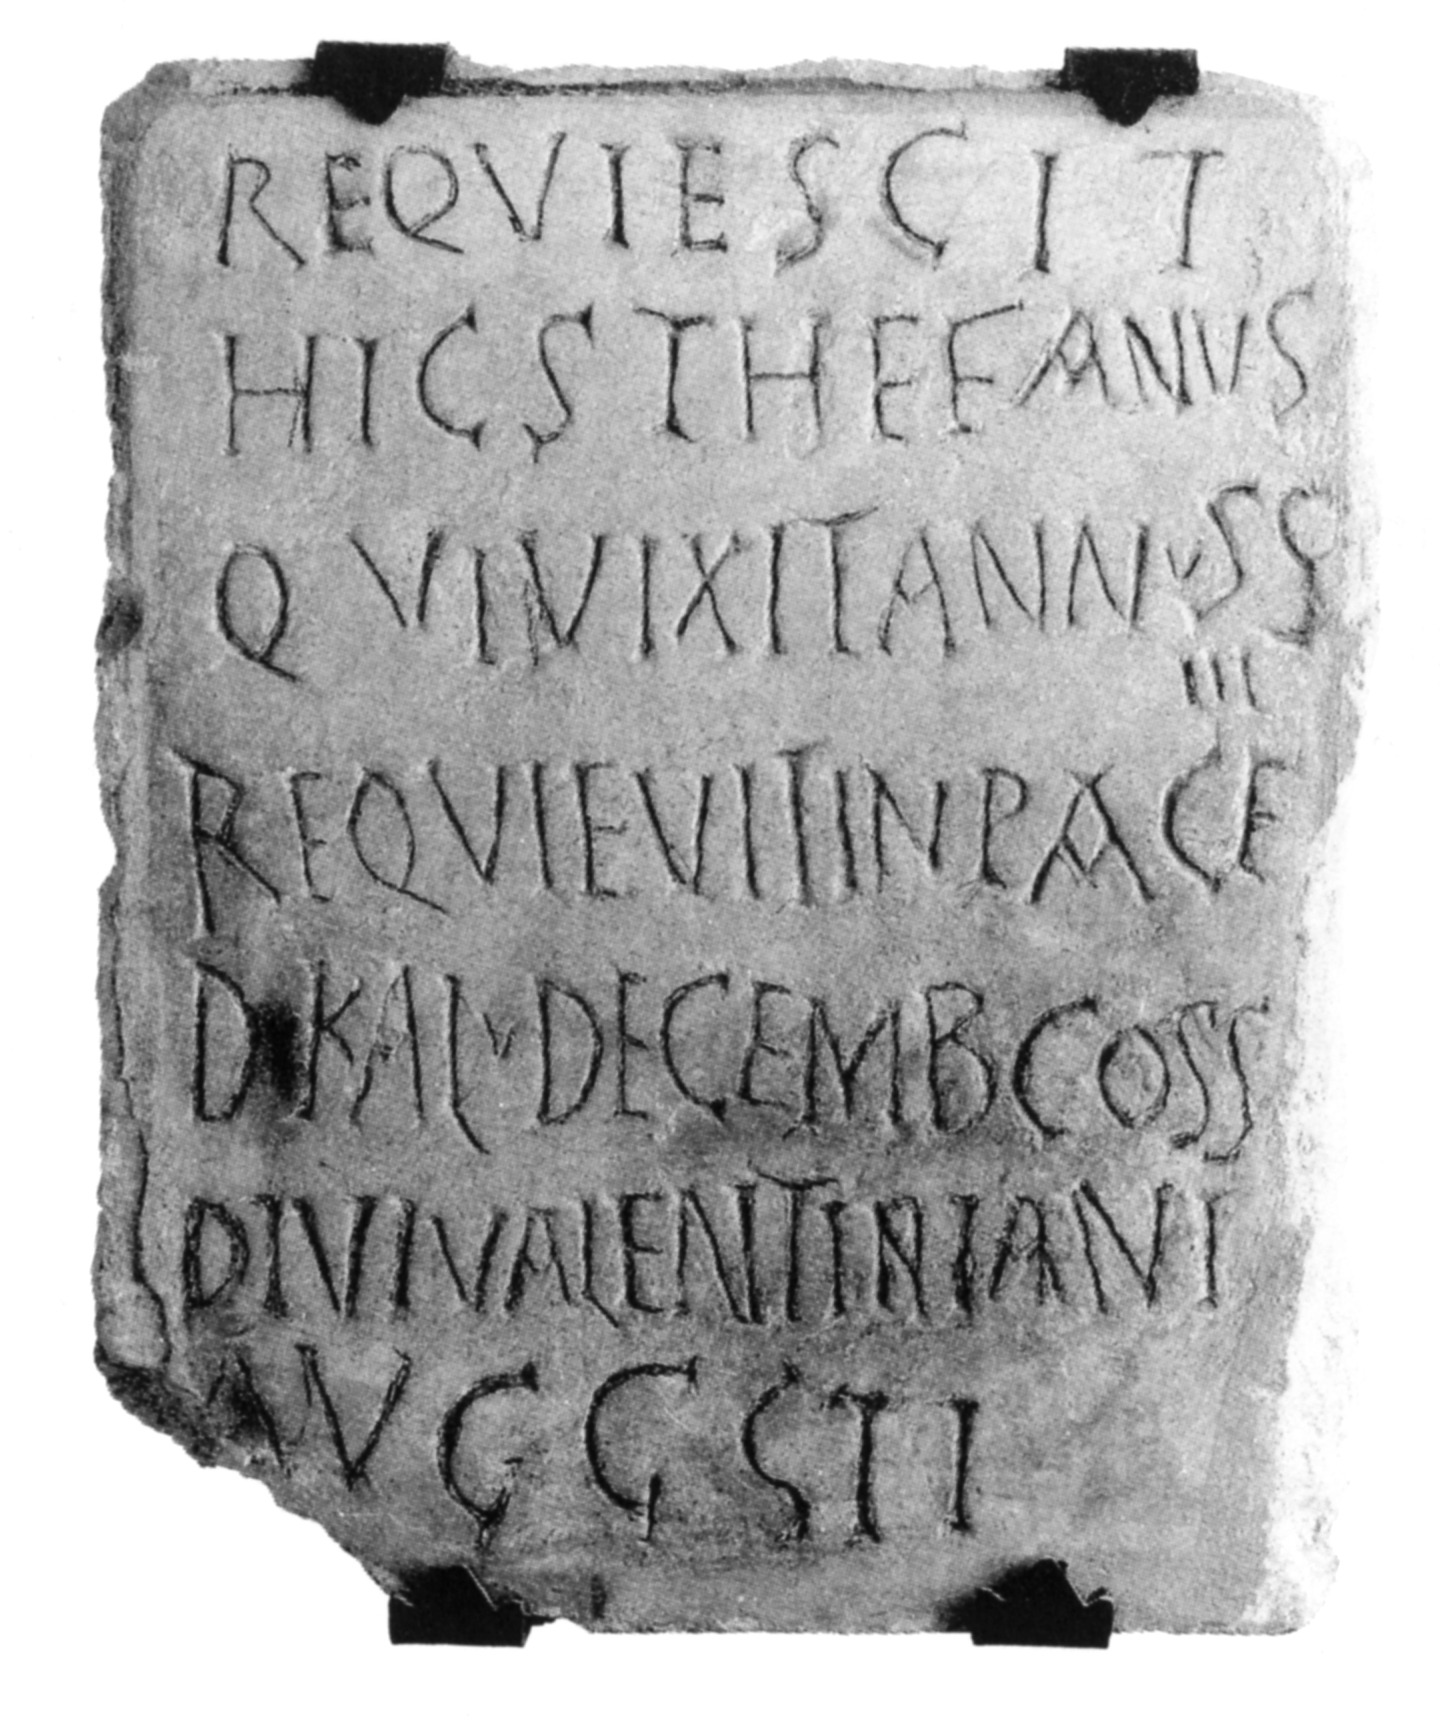 REQVIESCIT
HIC STHEFANVS
QVI VIXIT ANNVS Ϛ
III
REQVIEVIT IN PACE
D KAL DECEMB COSS
DIVI VALENTINIANI
AVGGSTI